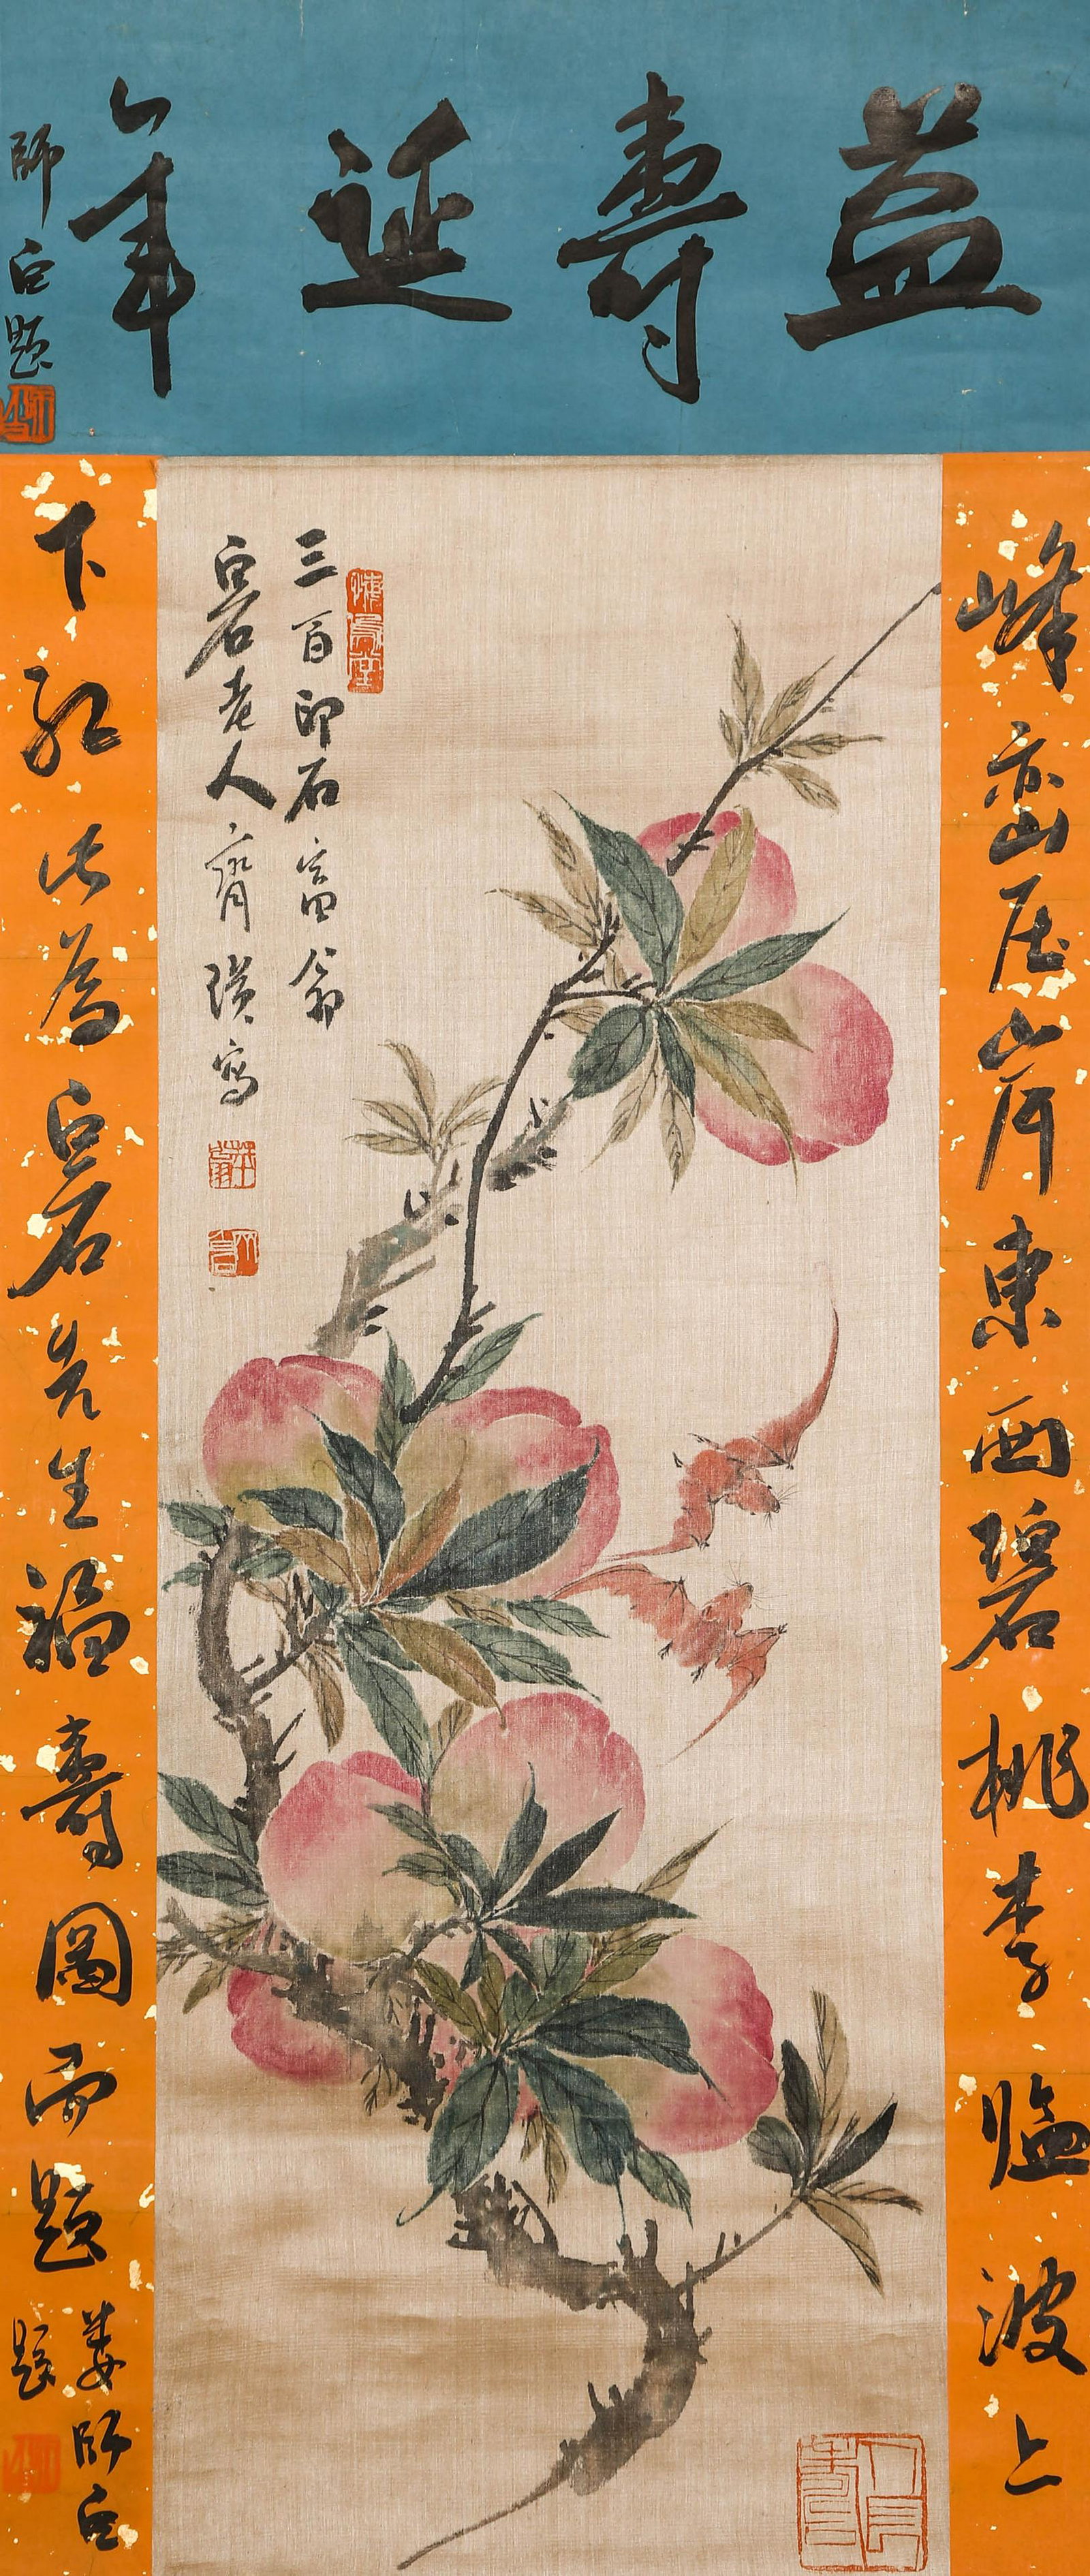 益壽延年
師白題
峰巒压岸東西碧桃李臨波上
下紅此為白石先生福壽圖而題
婁師白
題
悔烏堂
三百印石富翁
白石老人齊璜寫
人長壽